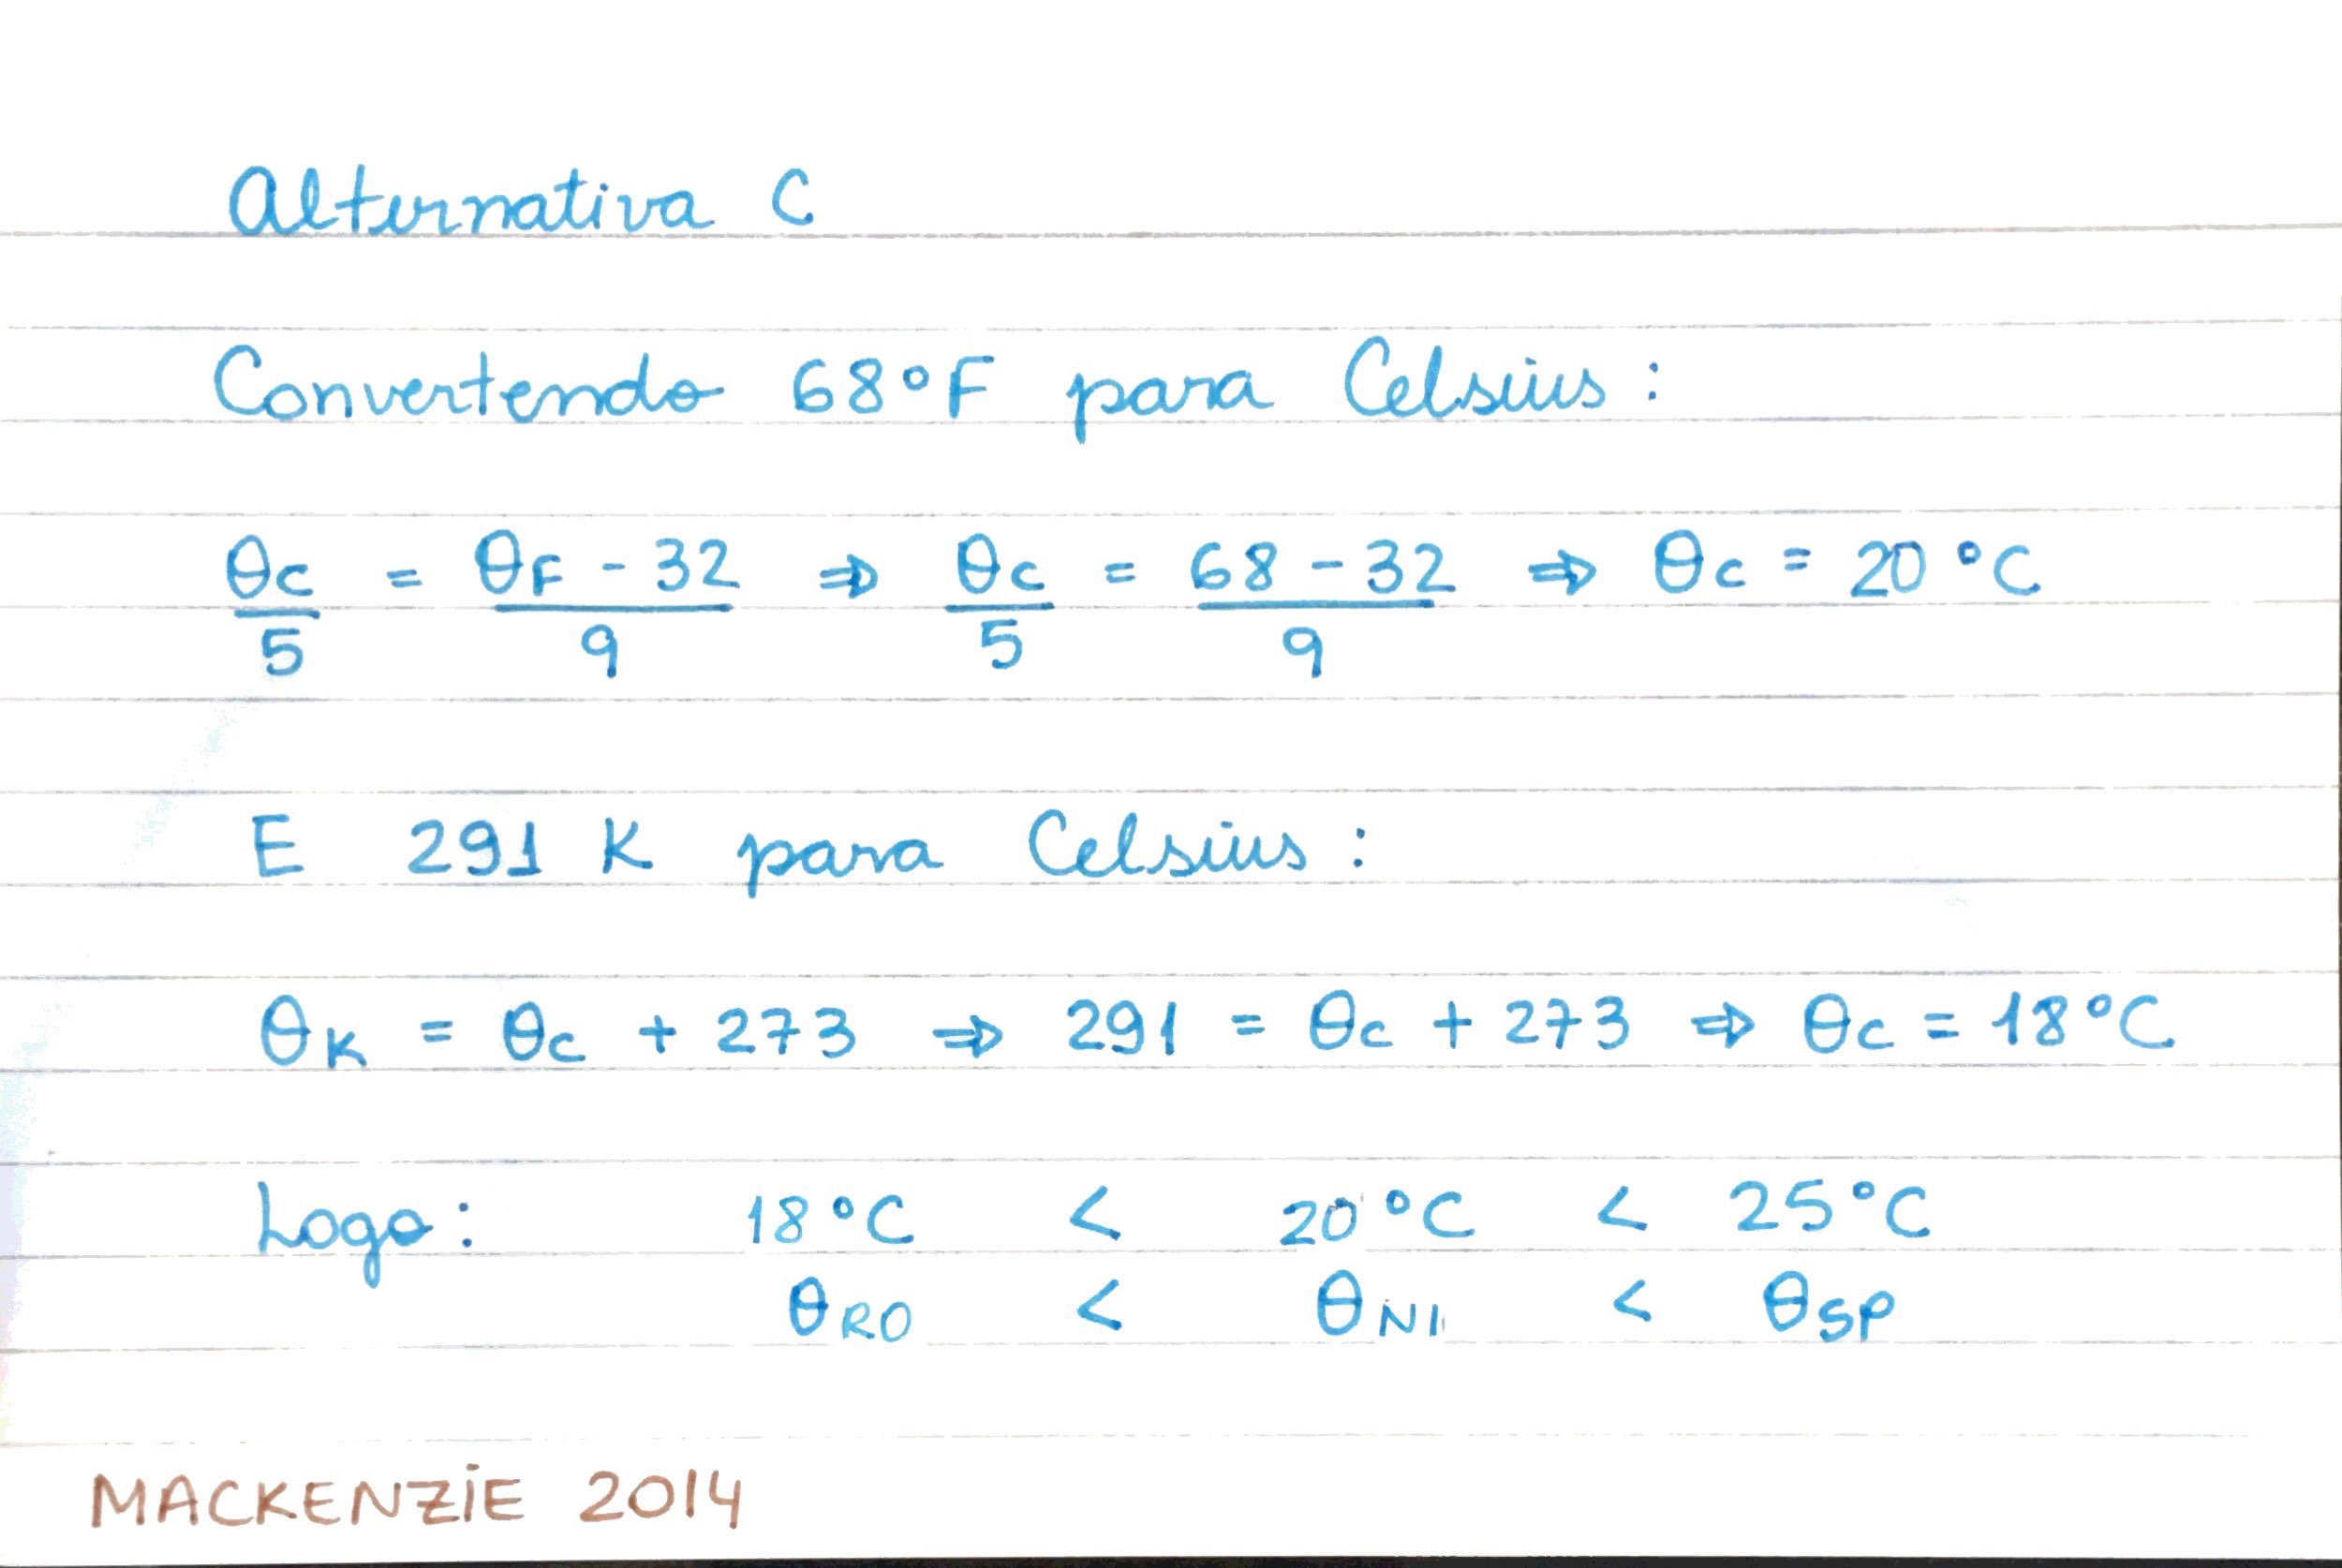 Alternativa C
Convertendo 68°F para Celsius:
θC/5 = θF - 32/9 ⇒ θC/5 = 68 - 32/9 ⇒ θC = 20 °C
E 291 K para Celsius:
θK = θC + 273 ⇒ 291 = θC + 273 ⇒ θC = 18°C
Logo: 18°C < 20°C < 25°C
θRO < θNI < θSP
MACKENZIE 2014